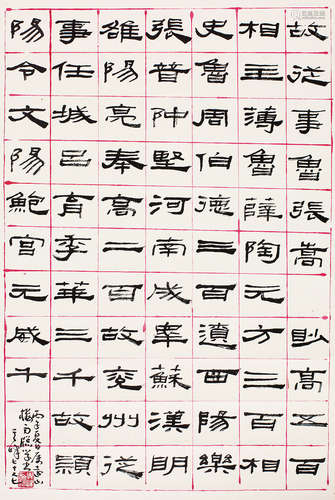 故從事魯張嵩眇高五百
相主薄魯薛陶元方三百相
史魯周伯德三百遺曲陽樂
張普仲堅河南成皋蘇漢明
雒陽亮奉高二百故兗州從
事任城呂育季華三千故潁
陽令文陽鮑宮元威千
丙子夏日